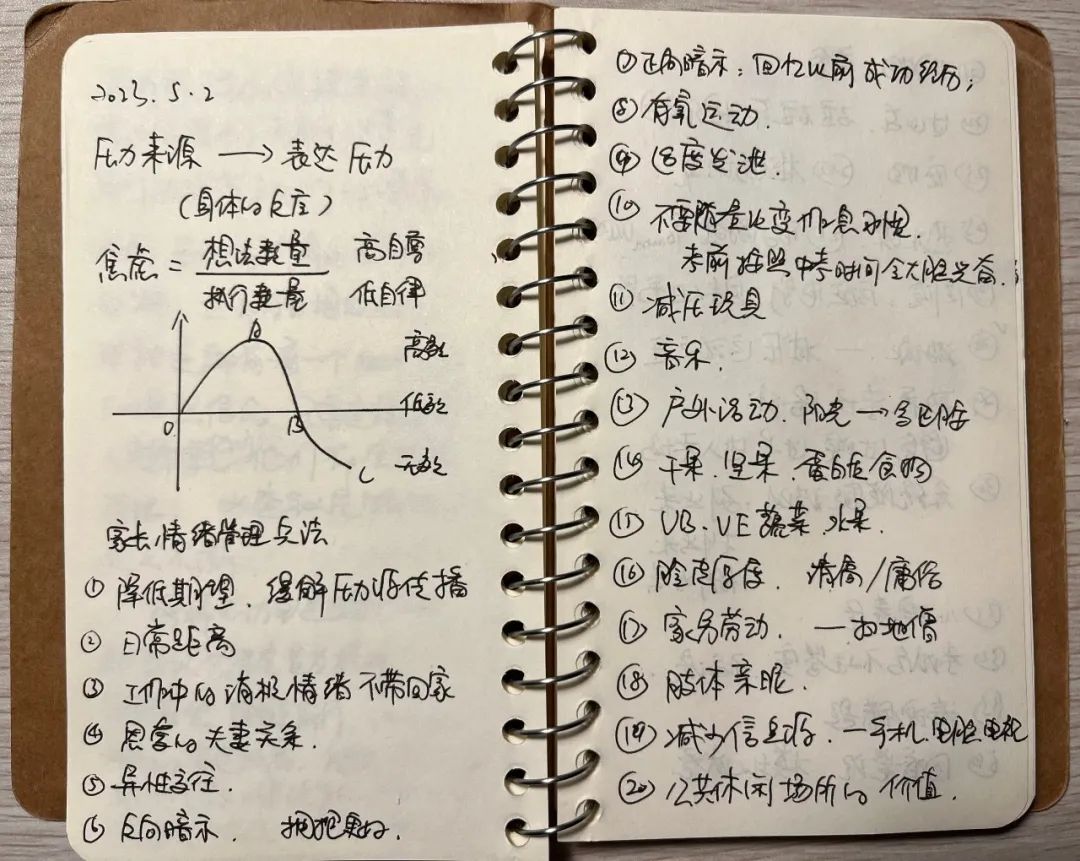 2023.5.2
压力来源 → 表达压力
(身体的反应)
焦虑 = 想法数量 / 执行数量
高自尊
低自律
A
高效
O
B
低效
C
无效
家长情绪管理兵法
① 降低期望、缓解压力源传播
② 日常距离
③ 工作中的消极情绪不带回家
④ 恩爱的夫妻关系.
⑤ 异性交往.
⑥ 反向暗示. 拥抱更好.
⑦ 正向暗示: 回忆以前成功经历;
⑧ 有氧运动.
⑨ 适度发泄.
⑩ 不要随意改变作息习惯.
考前按照中考时间全大脑兴奋.
⑪ 减压玩具
⑫ 音乐
⑬ 户外活动. 阳光 →
⑭ 干果. 坚果. 蛋白质食物
⑮ VB. VE 蔬菜. 水果.
⑯ 脸皮厚度. 清高/庸俗
⑰ 家务劳动. — 扫地僧
⑱ 肢体亲昵.
⑲ 减少信息源. — 手机. 电脑. 电视
⑳ 公共休闲场所的价值.